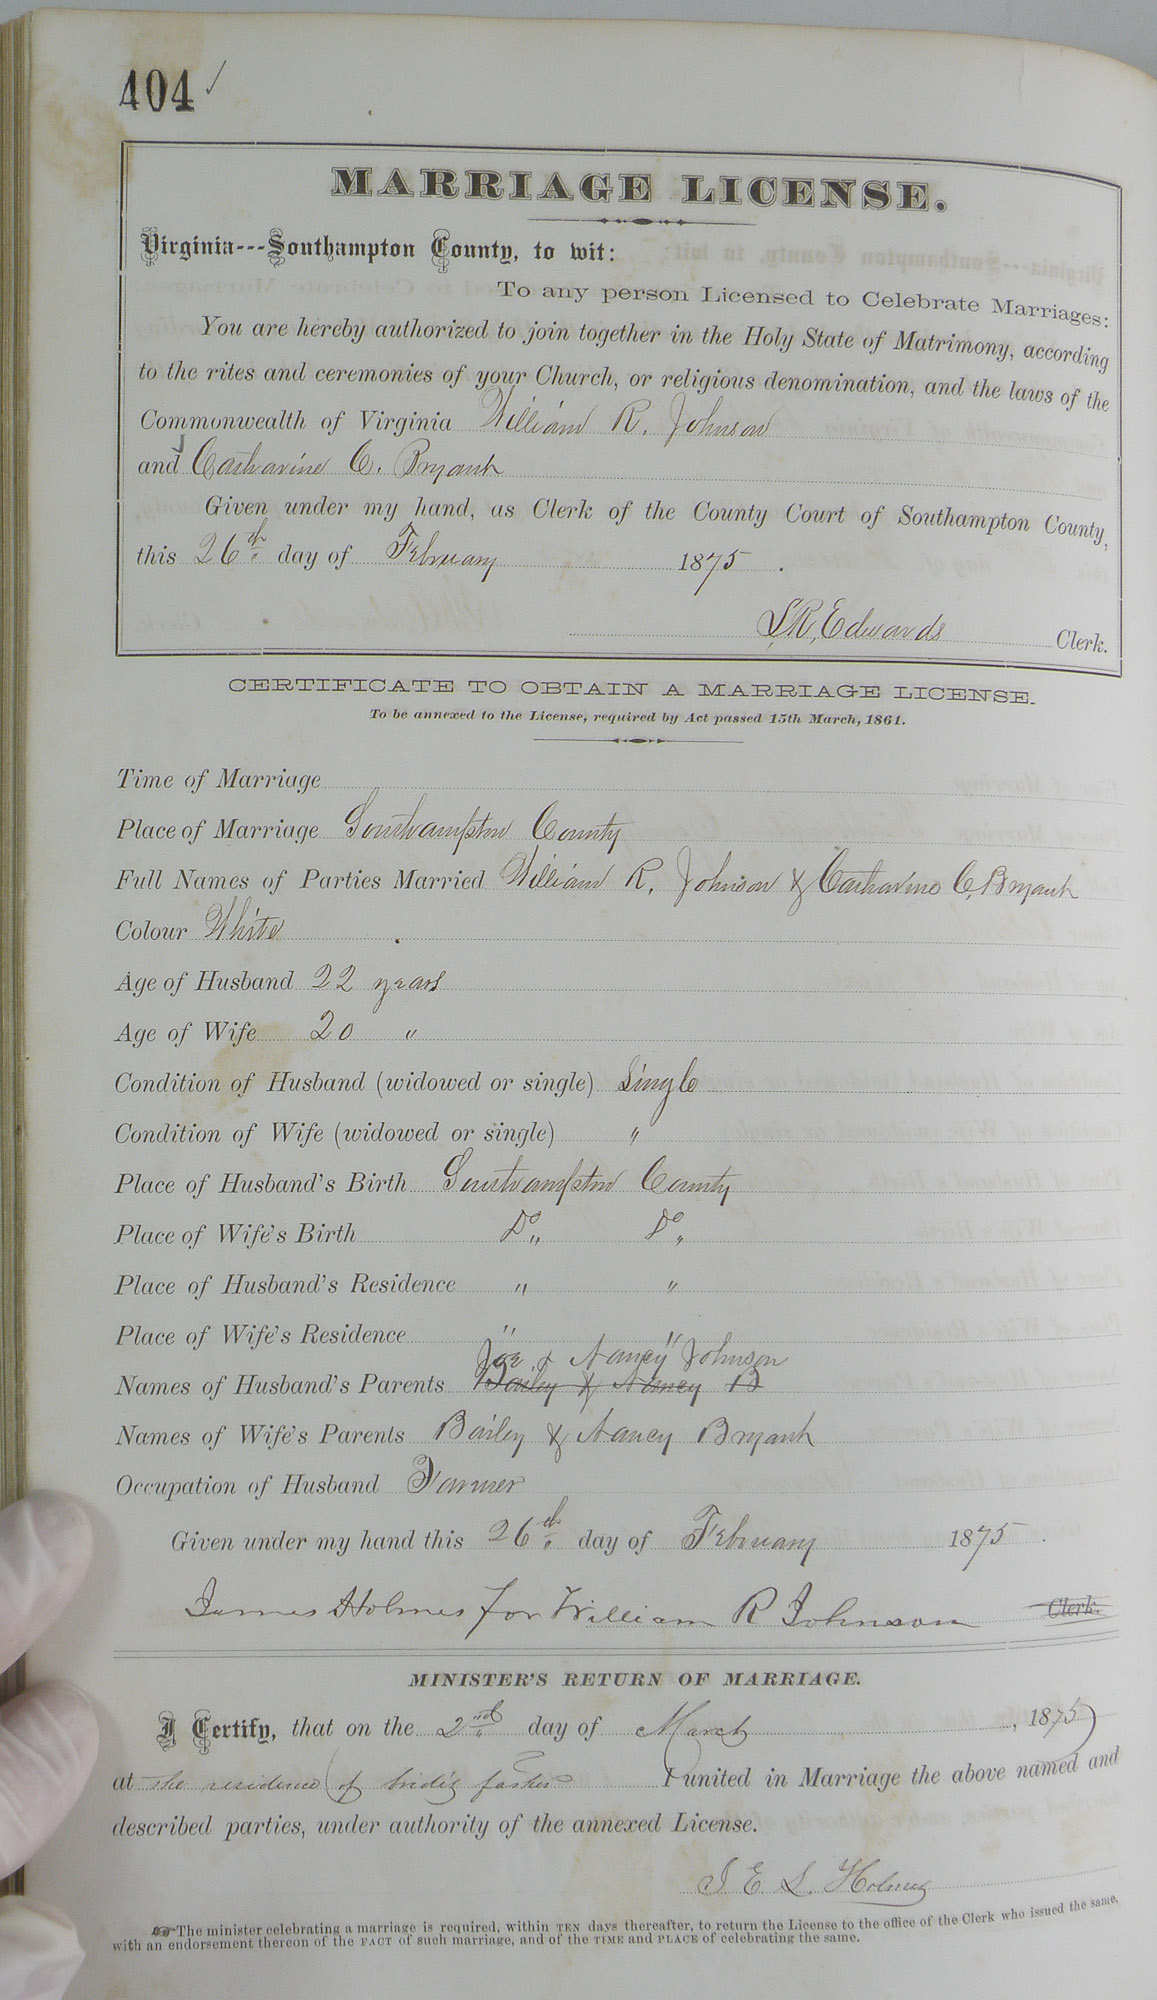 404
MARRIAGE LICENSE.
Virginia---Southampton County, to wit:
To any person Licensed to Celebrate Marriages:
You are hereby authorized to join together in the Holy State of Matrimony, according
to the rites and ceremonies of your Church, or religious denomination, and the laws of the
Commonwealth of Virginia William R. Johnson
and Catharine C. Bryant
Given under my hand, as Clerk of the County Court of Southampton County,
this 26th day of February 1875.
L.R. Edwards Clerk.
CERTIFICATE TO OBTAIN A MARRIAGE LICENSE.
To be annexed to the License, required by Act passed 15th March, 1861.
Time of Marriage
Place of Marriage Southampton County
Full Names of Parties Married William R. Johnson & Catharine C. Bryant
Colour White
Age of Husband 22 years
Age of Wife 20 "
Condition of Husband (widowed or single) Single
Condition of Wife (widowed or single) "
Place of Husband's Birth Southampton County
Place of Wife's Birth Do " Do "
Place of Husband's Residence " "
Place of Wife's Residence " "
Joe & Nancy Johnson
Names of Husband's Parents Bailey & Nancy B
Names of Wife's Parents Bailey & Nancy Bryant
Occupation of Husband Farmer
Given under my hand this 26th day of February 1875.
James Holmes for William R Johnson Clerk.
MINISTER'S RETURN OF MARRIAGE.
I Certify, that on the 2nd day of March, 1875
at the residence of bride's father I united in Marriage the above named and
described parties, under authority of the annexed License.
J. E. L. Holmes
The minister celebrating a marriage is required, within TEN days thereafter, to return the License to the office of the Clerk who issued the same,
with an endorsement thereon of the FACT of such marriage, and of the TIME and PLACE of celebrating the same.